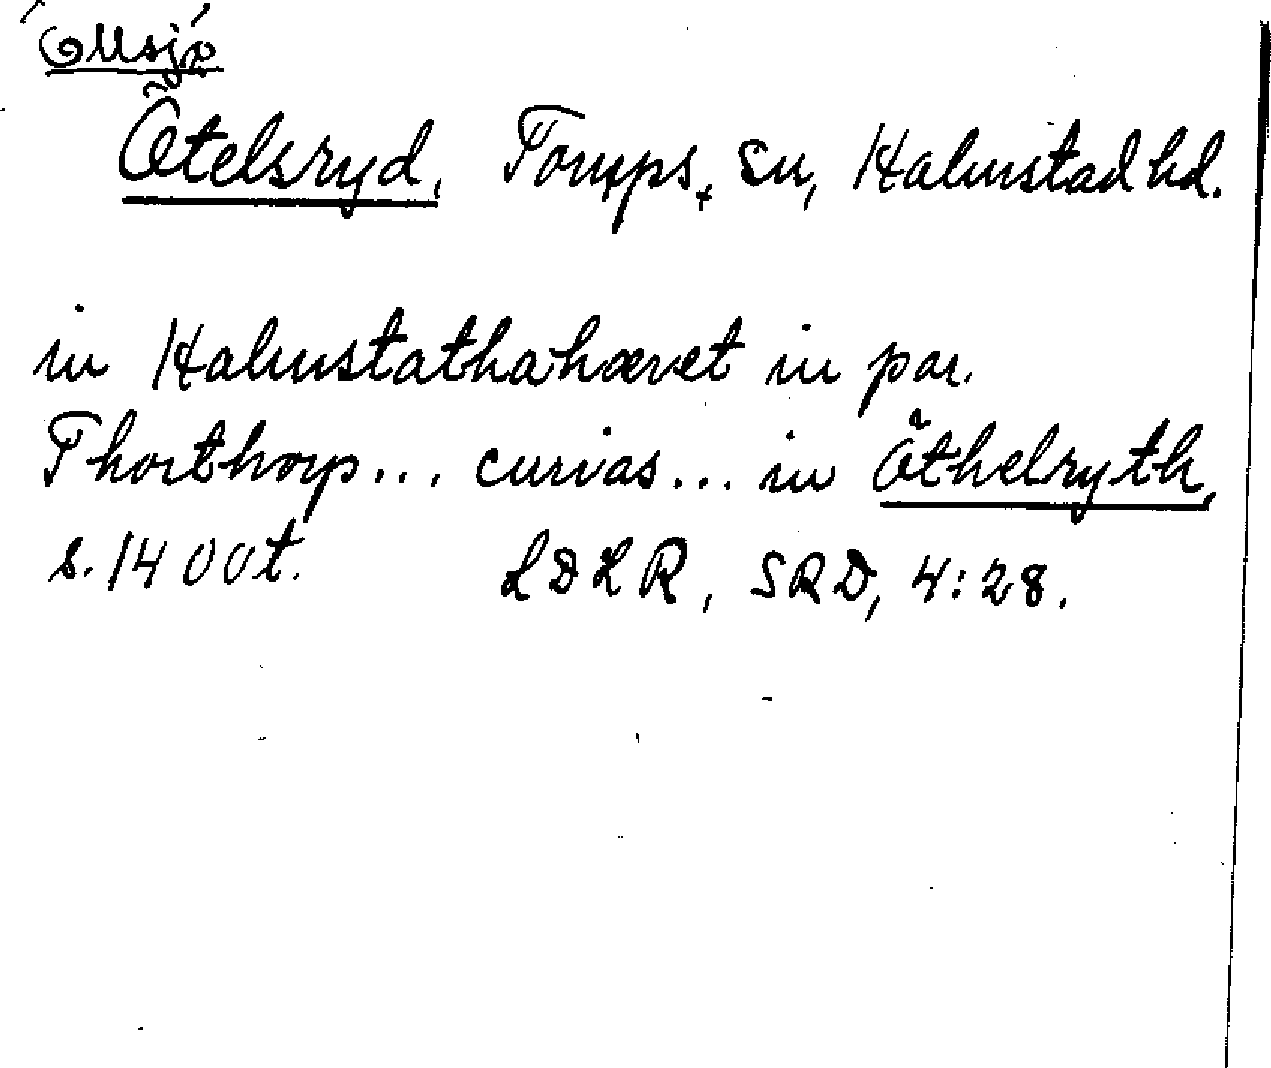 Ötelsryd, Torups, sn, Halmstad hd.
in Halmstathahæret in par.
Thorthorp... curias... in Öthelryth,
s. 1400t. LDLR, SRD, 4:28.